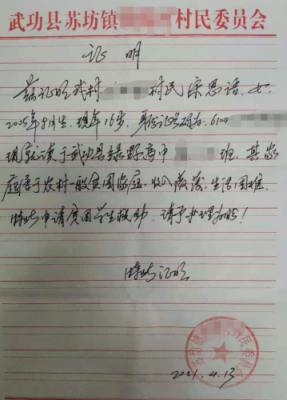 武功县苏坊镇 村民委员会
证明
兹证明我村 村民宋思语，女，
2005年9月生，现年16岁，身份证号码为：610
现就读于武功县绿野高中 班，其家
庭属于农村一般贫困家庭，收入微薄，生活困难，
特此申请贫困学生救助，请予办理为盼！
特此证明
2021.4.13